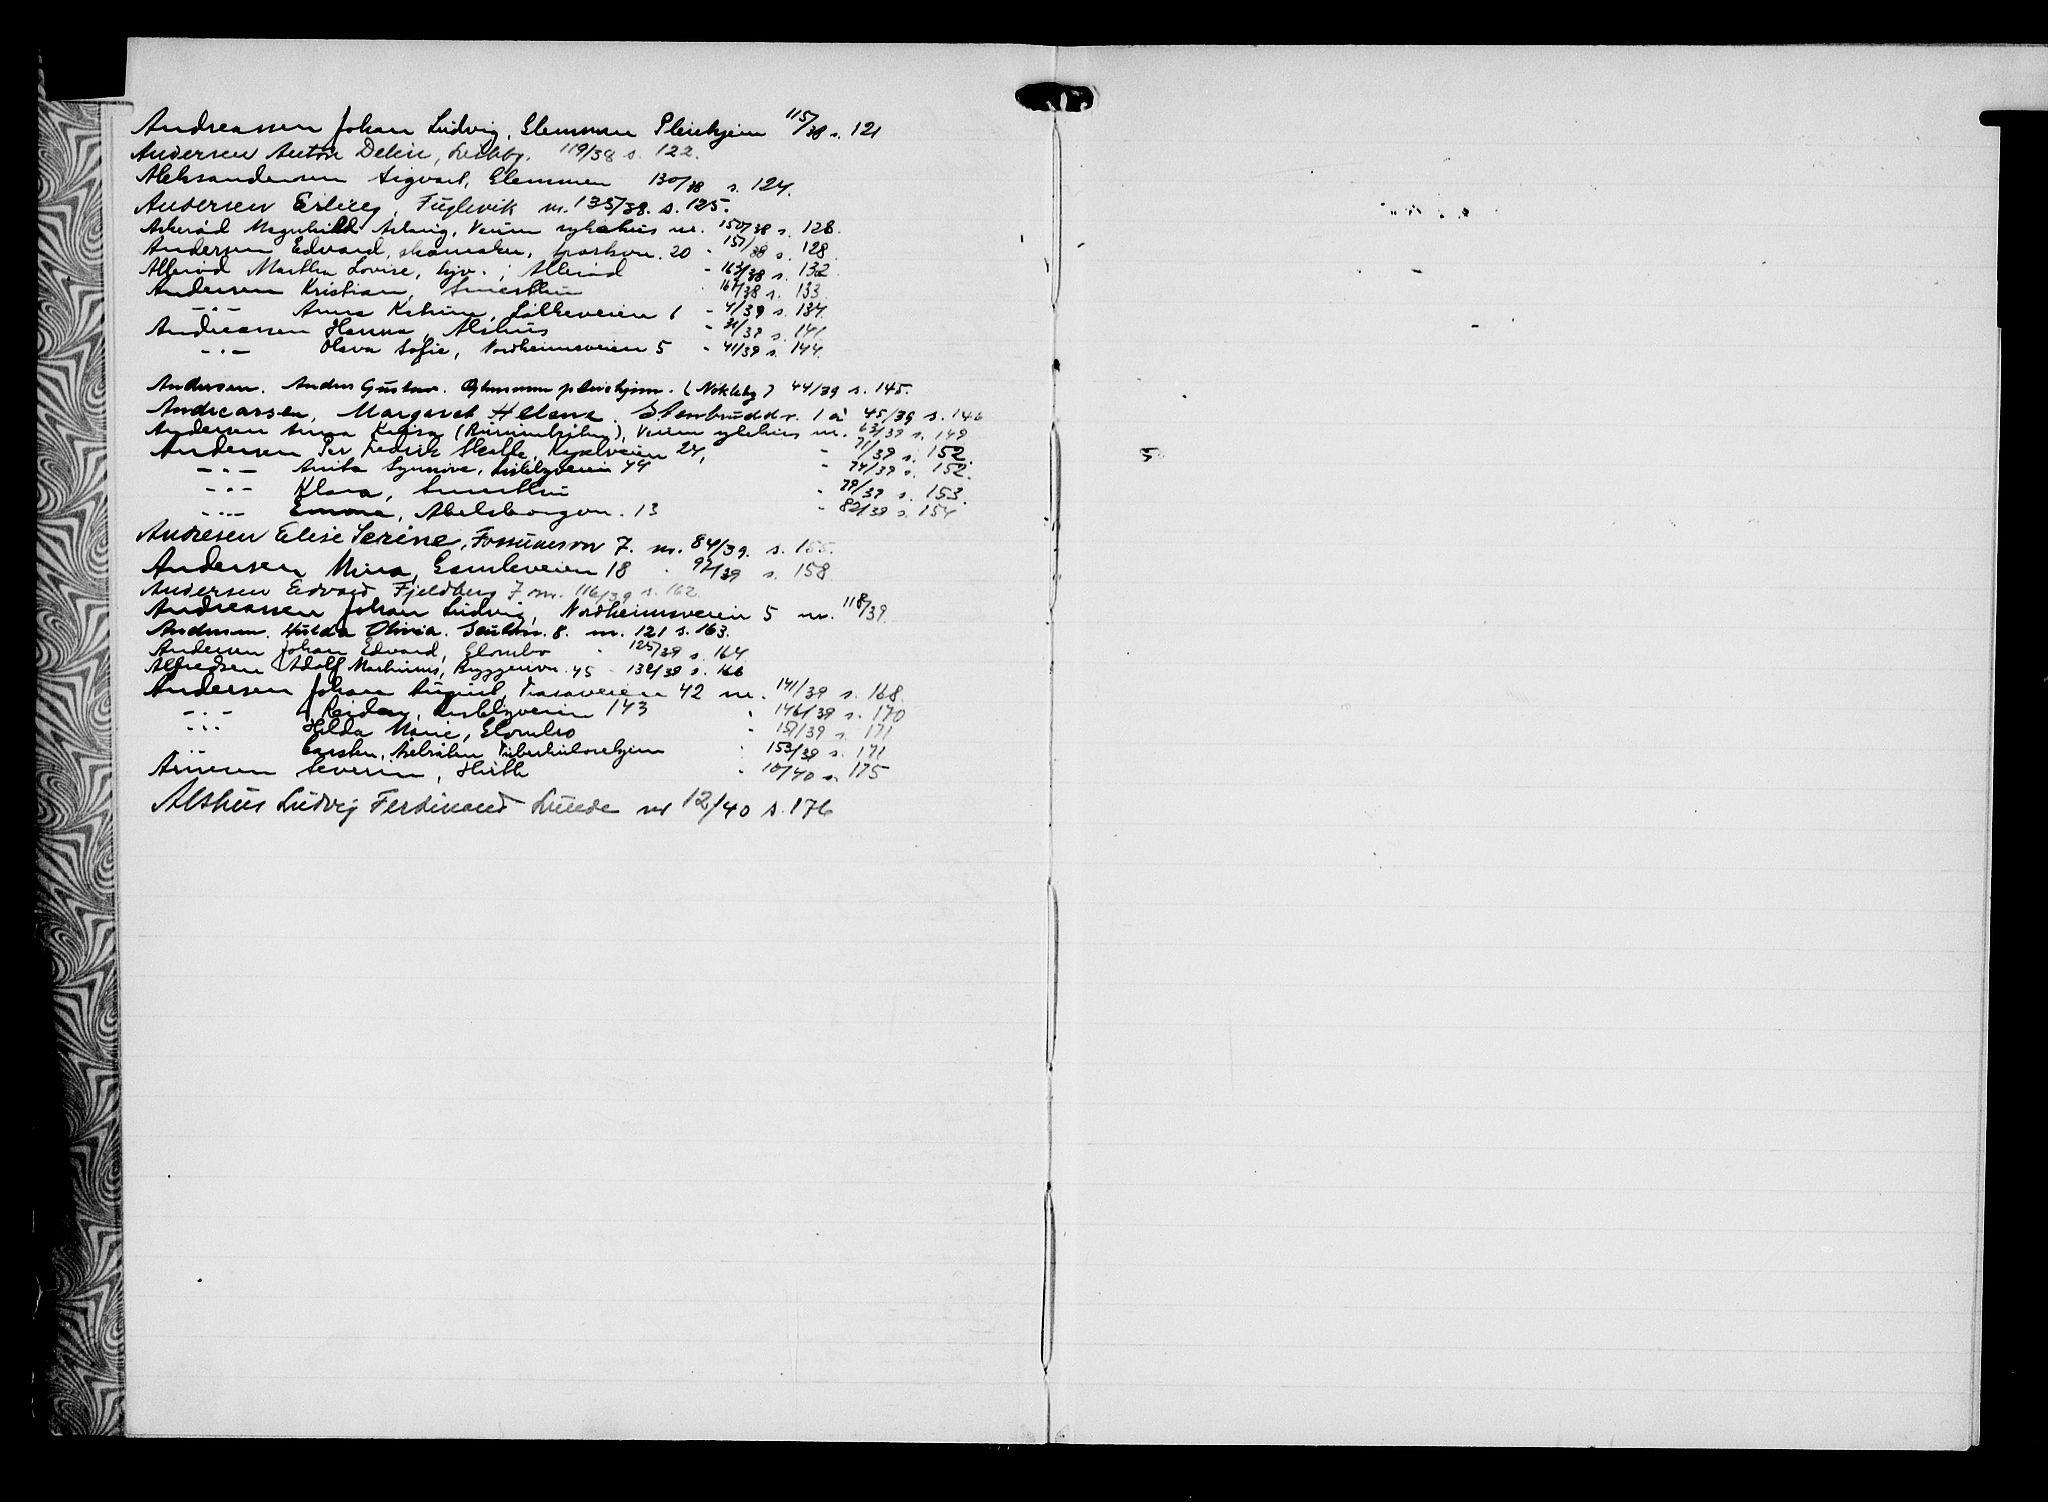 Andreassen Johan Ludvig, Glemmen Pleiehjem 115/38 s. 121
Andersen Anton Delin, Lislebg. 119/38 s. 122.
Aleksandersen Sigvart, Glemmen 130/38 s. 124.
Andersen Erling, Fuglevik nr. 135/38. s. 125.
Askerød Magnhild Aslaug, Veum sykehus nr. 150/38 s. 128.
Andersen Edvard, skomaker, 20 - 151/38 s. 128.
Allerød Martha Lovise, Allerød - 163/38 s. 132.
Andersen Kristian, Smertulin 167/38 s. 133
-"- Anna Katrine, Løkkeveien 1 - 4/39 s. 134.
Andreassen Hanna, Alshus - 31/39 s. 141.
-"- Olava Sofie, Nordheimsveien 5 - 41/39 s. 144.
Andersen. Anders Gustav. Glemmen pleiehjem. (Nokleby) 44/39 s. 145.
Andreassen, Margaret Helene. Stenbruddv. 1 a 45/39 s. 146
Andersen Anna Kaisa, Veum sykehus nr. 63/39 s. 149
Andersen Per Fredrik Skolle, Kapelveien 24, - 71/39 s. 152.
-"- Anita Synnøve, Lislebyveien 44 - 74/39 s. 152.
-"- Klara, - 79/39 s. 153.
-"- Emma, Abelsborgv. 13 - 82/39 s. 154
Andresen Elise Serine, Fossumsvn 7. nr. 84/39. s. 155.
Andersen Mina, Gamleveien 18 - 92/39 s. 158
Andersen Edvard Fjeldberg 7 nr. 116/39 s. 162
Andreassen Johan Ludvig, Nordheimsveien 5 nr. 118/39.
Andersen. Hulda Olivia. 8. nr. 121 s. 163.
Andersen Johan Edvard, Glombo - 125/39 s. 164
Alfredsen Adolf Mathinius, Byggeriv. 45 - 132/39 s. 166
Andersen Johan August, Traraveien 42 nr. 141/39 s. 168.
-"- Reidar, Lislebyveien 143 - 146/39 s. 170
-"- Hilda Marie, Glombo - 151/39 s. 171
-"- Carsten, Tuberkulosehjem - 153/39 s. 171
Arnesen Severin, - 10/40 s. 175
Alshus Ludvig Ferdinand Lunde nr 12/40 s. 176